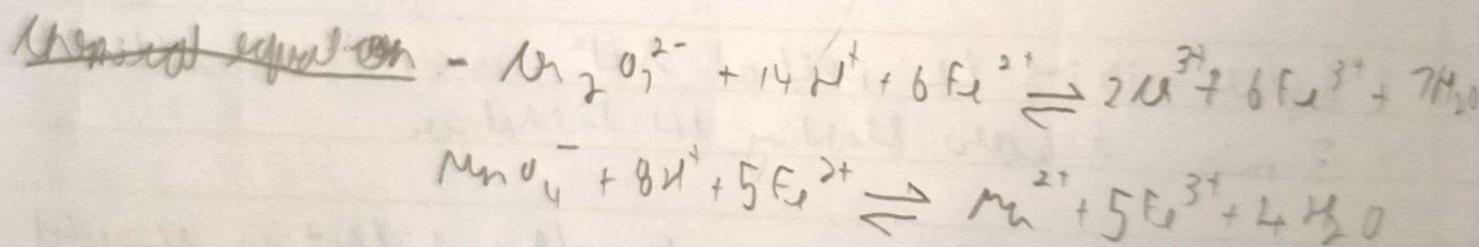 Chemical equation - Cr₂O₇²⁻ + 14H⁺ + 6Fe²⁺ ⇌ 2Cr³⁺ + 6Fe³⁺ + 7H₂O
MnO₄⁻ + 8H⁺ + 5Fe²⁺ ⇌ Mn²⁺ + 5Fe³⁺ + 4H₂O